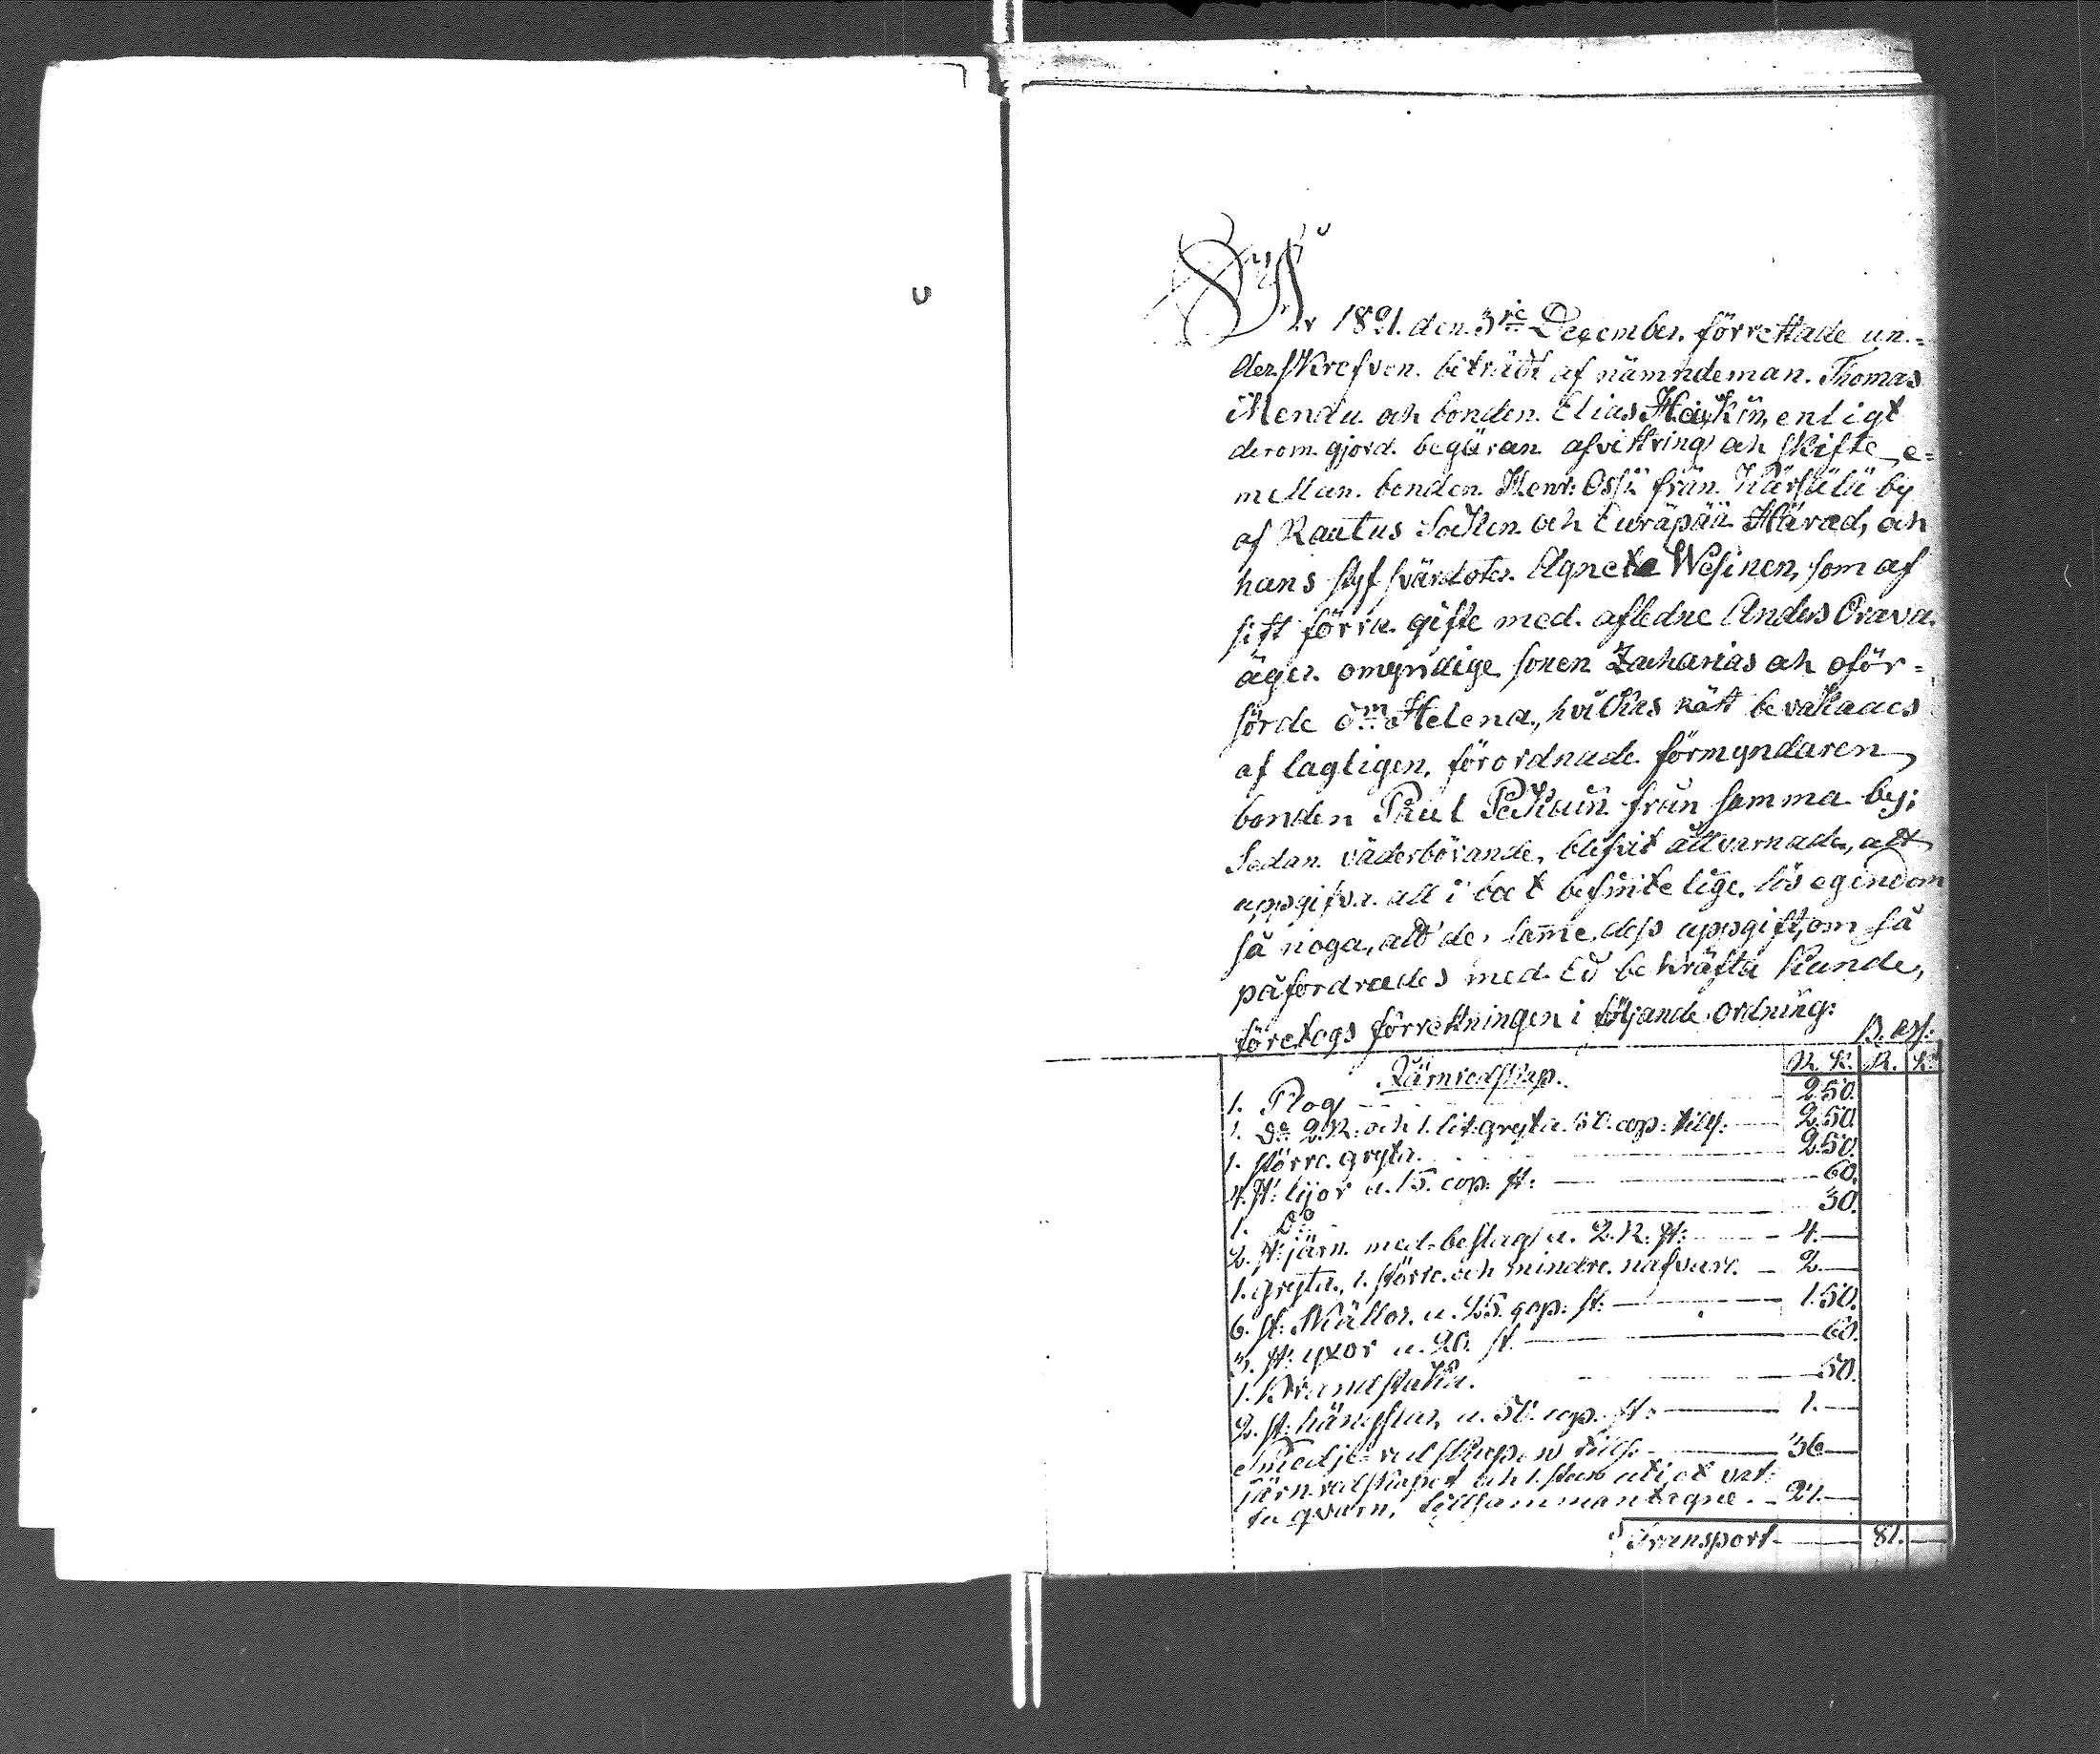 År 1821. den 3die December förrettade un=
derskrefven biträdt af nämndeman Thomas
Mendu och bonden Elias Haikiñ, enligt
derom gjord begäran afvittring och skifte e=
mellan bonden Henr: Ossi från Kärsälä by
af Rautus Sockn och Euräpää Härad, och
hans styfsvärdoter Agneta Wesinen, som af
sitt förra gifte med afledne Anders Orava
äger omyndige sonen Zacharias och oför=
sörde Dm Helena, hvilkas rätt bevakades
af lagligen förordnade förmyndaren
bonden Paul Pekaiñ från samma by;
Sedan väderbörande blefvit åttvarnade, att
uppgifva all i boet befintelige lös egendom
så noga, att de samme dess uppgift, om så
påfordrades med Ed bekräfta kunde,
företogs förrettningen i följande ordning:
B. Ass:
Järnredskap. R. K. R. K.
1. Plog 2.50.
1. Do 2.R. och 1. lit: gryta 50. cop: tills: 2.50
1. större gryta 2.50.
4. st: lijor a. 15. cop: st: 60.
1. Do 30.
2. st: järn med beslag a. 2.R. st: 4.
1. gryta, 1. större och mindre nafvare 2
6. st: Skällor a. 25. cop: st: 1.50.
3. st: yxor a. 20. st. 60.
1. Brandstaka 50.
2. st: a. 50. cop. st: 1.
Smedje redskapen tills: 36
Järnredskapet och 1. sten uti et vat=
tu qvarn, tillsammantagne 27.
Transport 81.